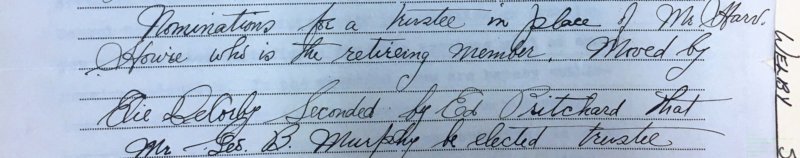 Nominations for a trustee in place of Mr. Harv.
Howre who is the retireing member. Moved by
Elie Delorby Seconded by Ed Pritchard that
Mr. Geo. B. Murphy be elected trustee
WELBY